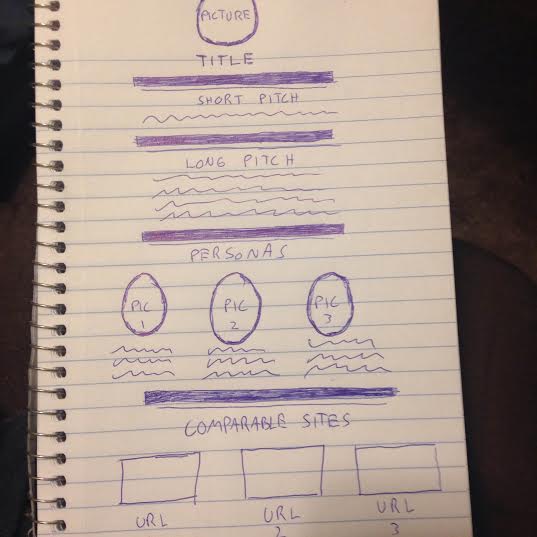 PICTURE
TITLE
SHORT PITCH
LONG PITCH
PERSONAS
PIC 1
PIC 2
PIC 3
COMPARABLE SITES
URL
URL 2
URL 3